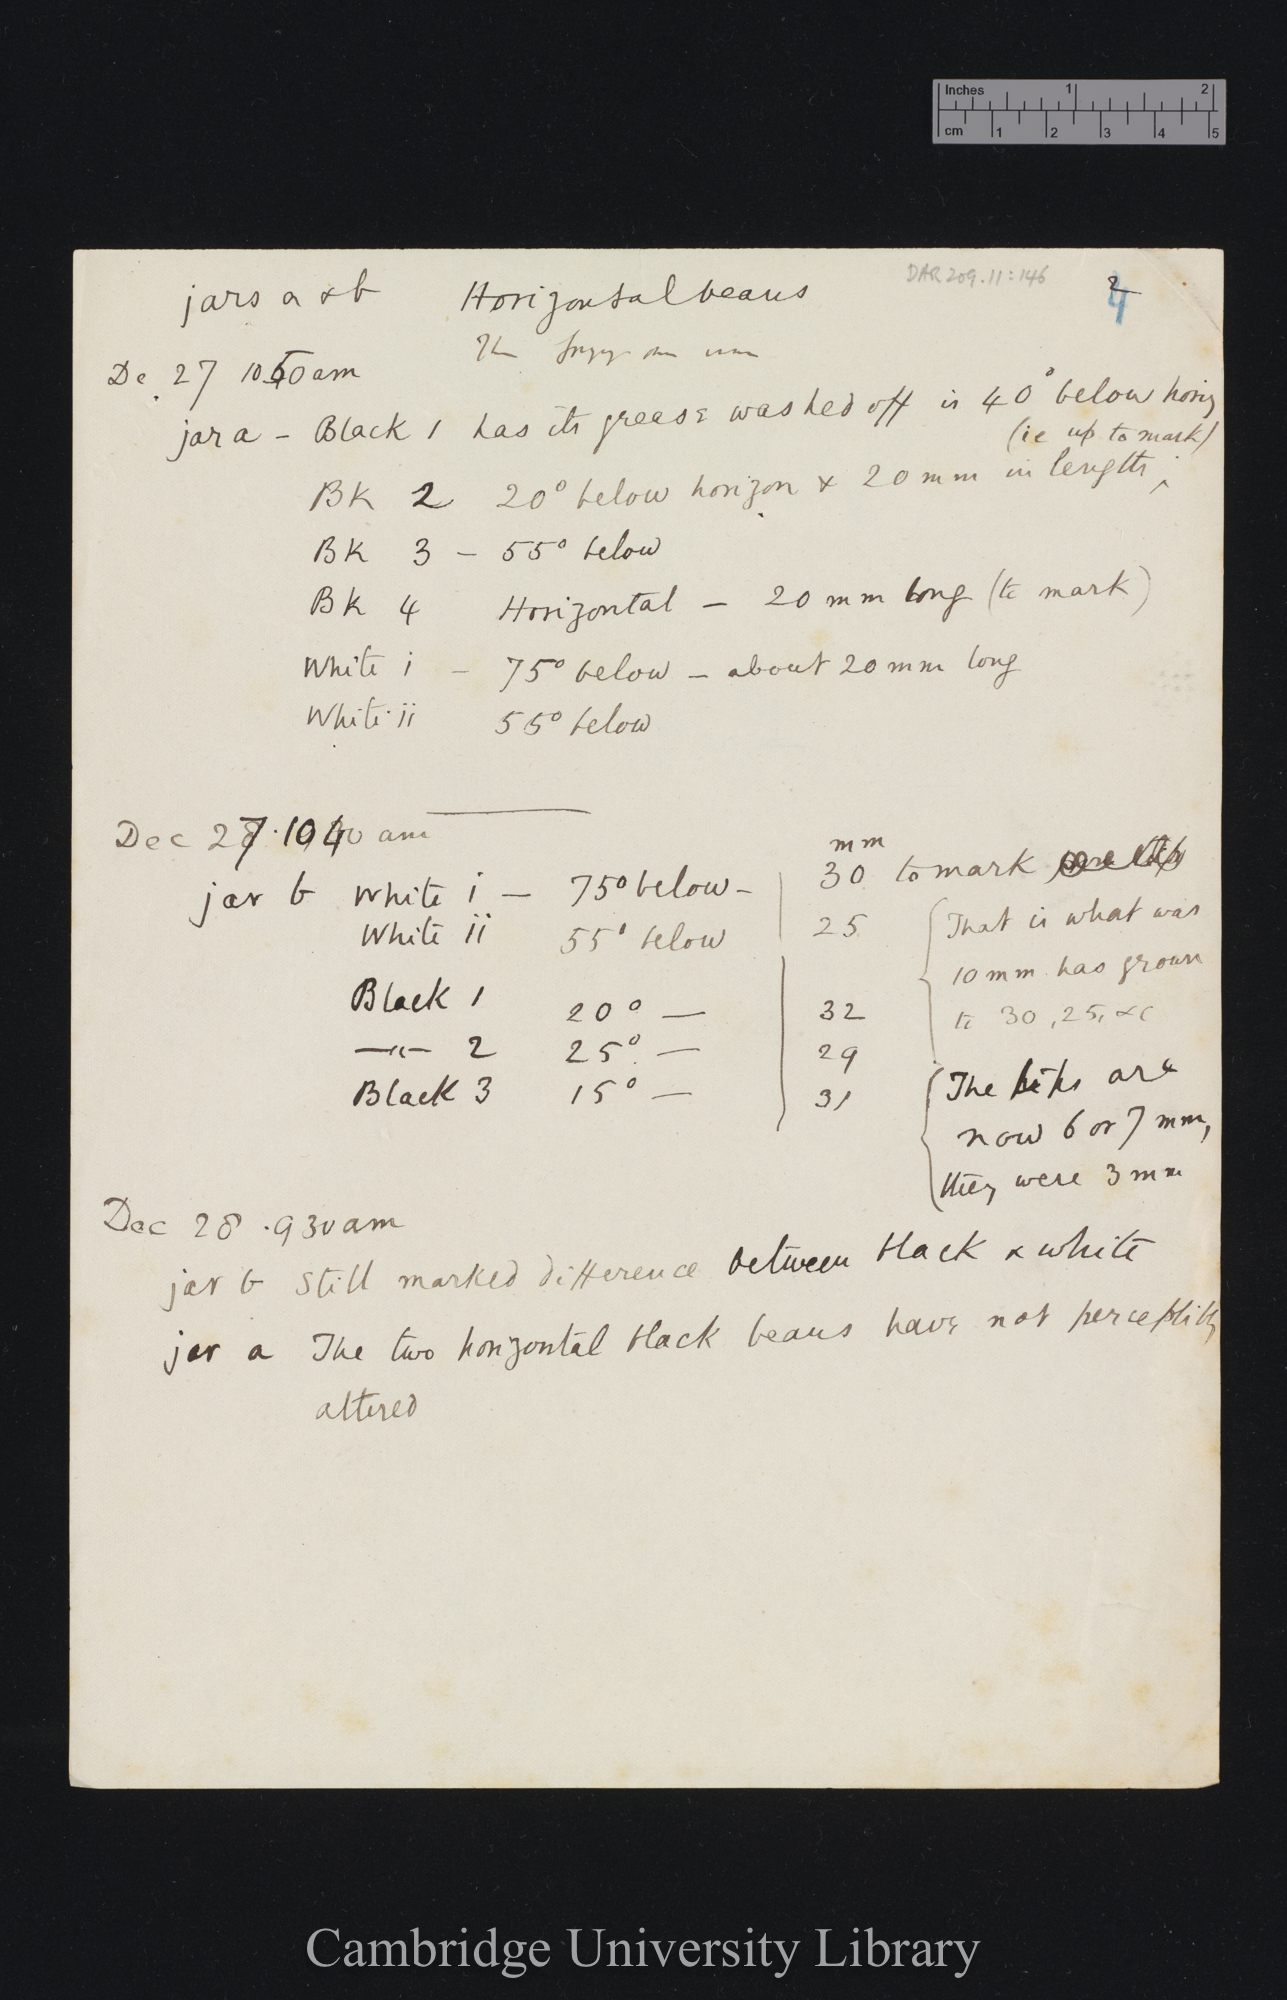 Inches 1 2
cm 1 2 3 4 5
DAR 209.11:146
2
4
jars a & b Horizontal beans
De 27 10 50 am
jar a – Black 1 has its grease washed off is 40° below horiz
(ie up to mark)
BK 2 20° below horizon & 20 mm in length;
BK 3 – 55° below
BK 4 Horizontal – 20 mm long (to mark)
White i – 75° below – about 20 mm long
White ii 55° below
Dec 27. 10 40 am
mm
jar b White i – 75° below – 30 to mark
White ii 55° below 25 That is what was
10 mm has grown
Black 1 20° — 32 to 30, 25, &c
—"— 2 25° — 29
Black 3 15° — 31 The tips are
now 6 or 7 mm,
they were 3 mm
Dec 28 . 9 30 am
jar b Still marked difference between black & white
jar a The two horizontal black beans have not perceptibly
altered
Cambridge University Library